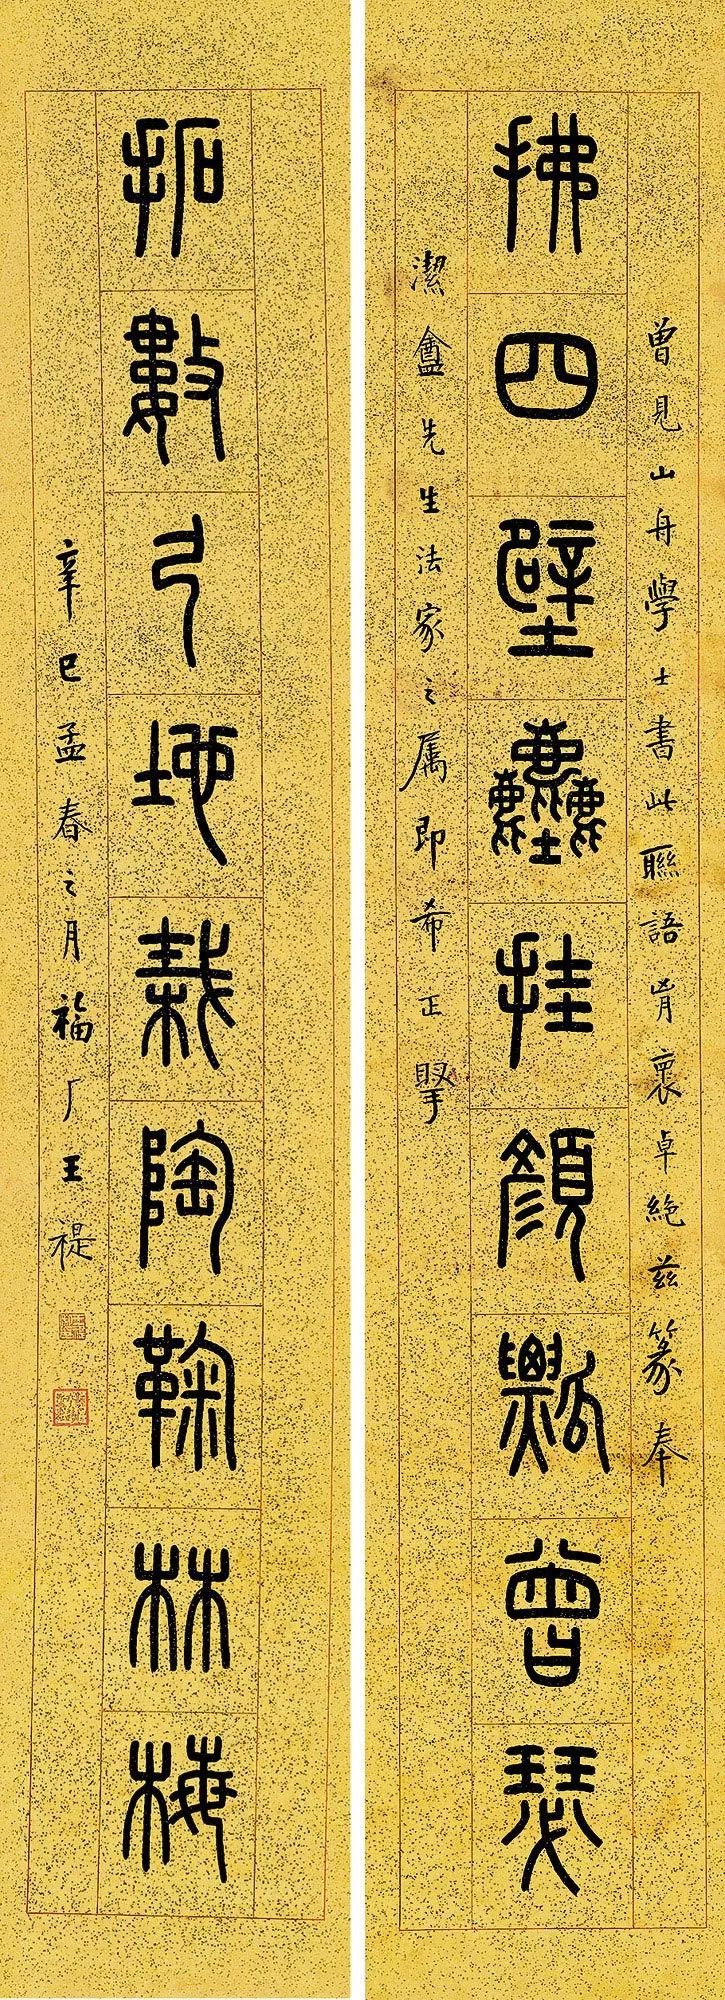 曾見山舟學士書此聯語胷褱卓絶茲篆奉
拂四壁塵挂顏點曾瑟
潔盦先生法家之属即希正掔
拓數弓地栽陶鞠林梅
辛巳孟春之月福厂王禔